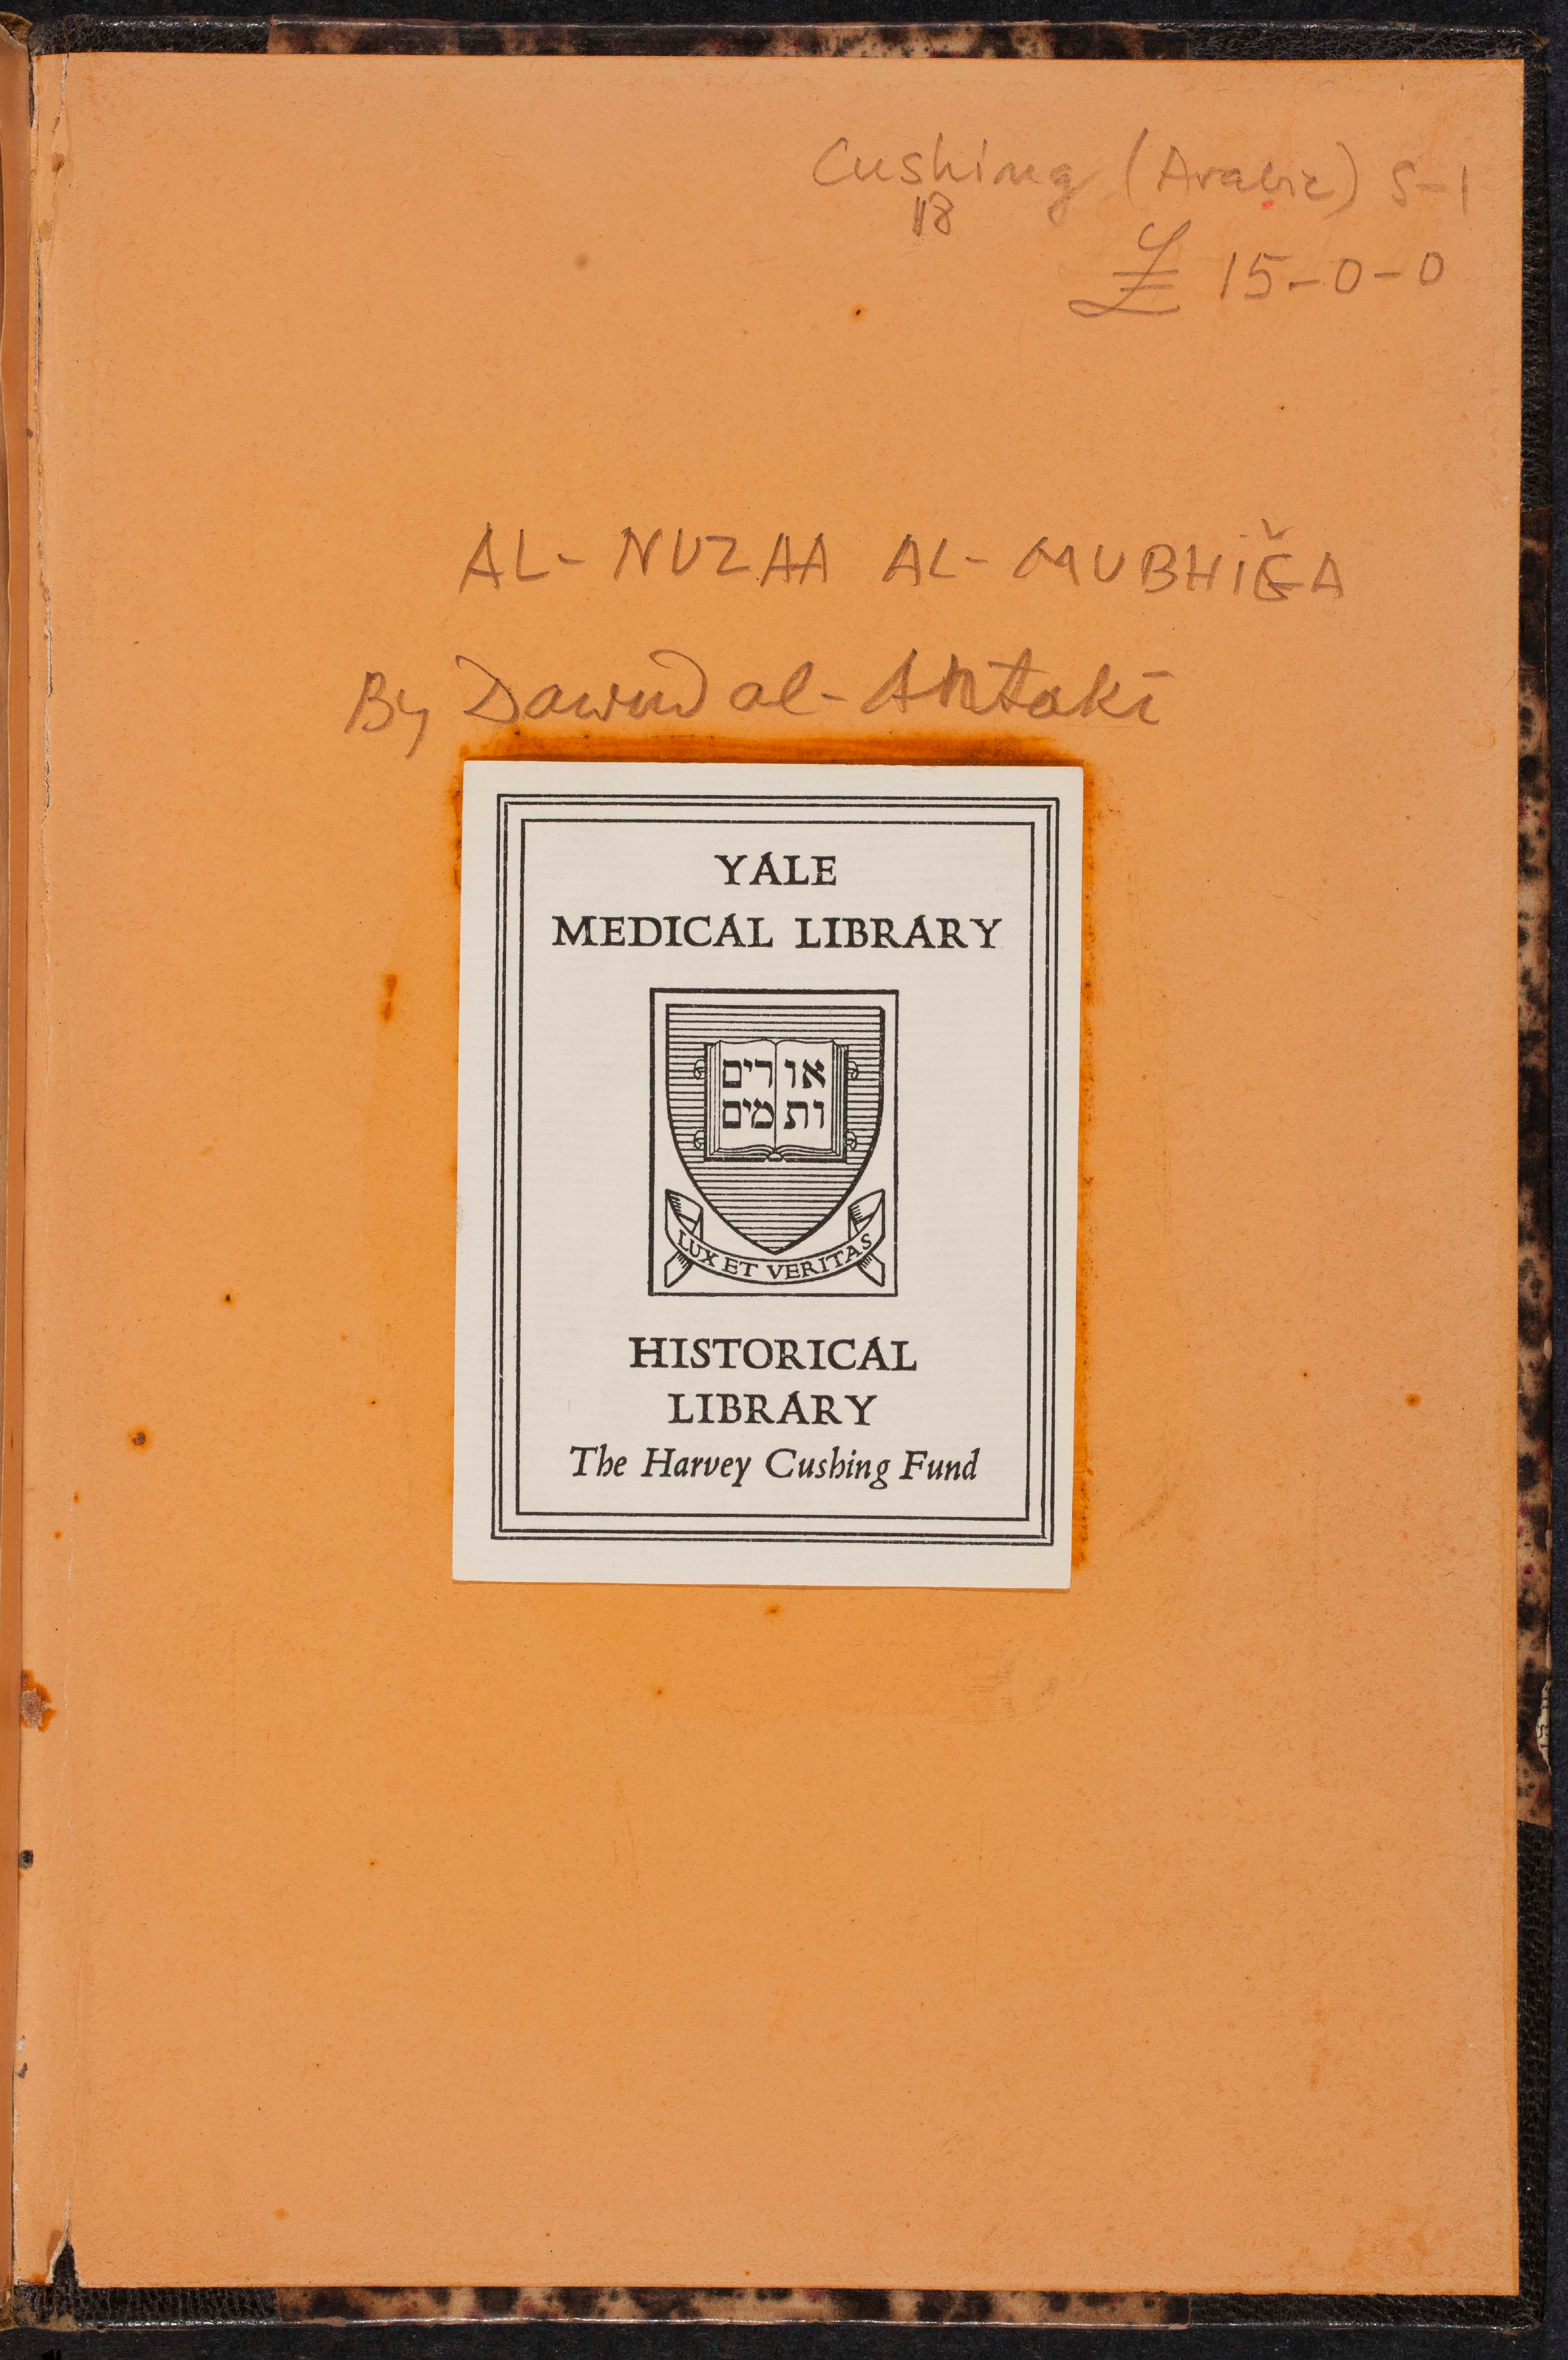 Cushing (Arabic) S-1
18
£ 15-0-0
AL- NUZAA AL- MUBHIǦA
By Dawud al-Antakī
YALE
MEDICAL LIBRARY
אורים
ותמים
LUX ET VERITAS
HISTORICAL
LIBRARY
The Harvey Cushing Fund